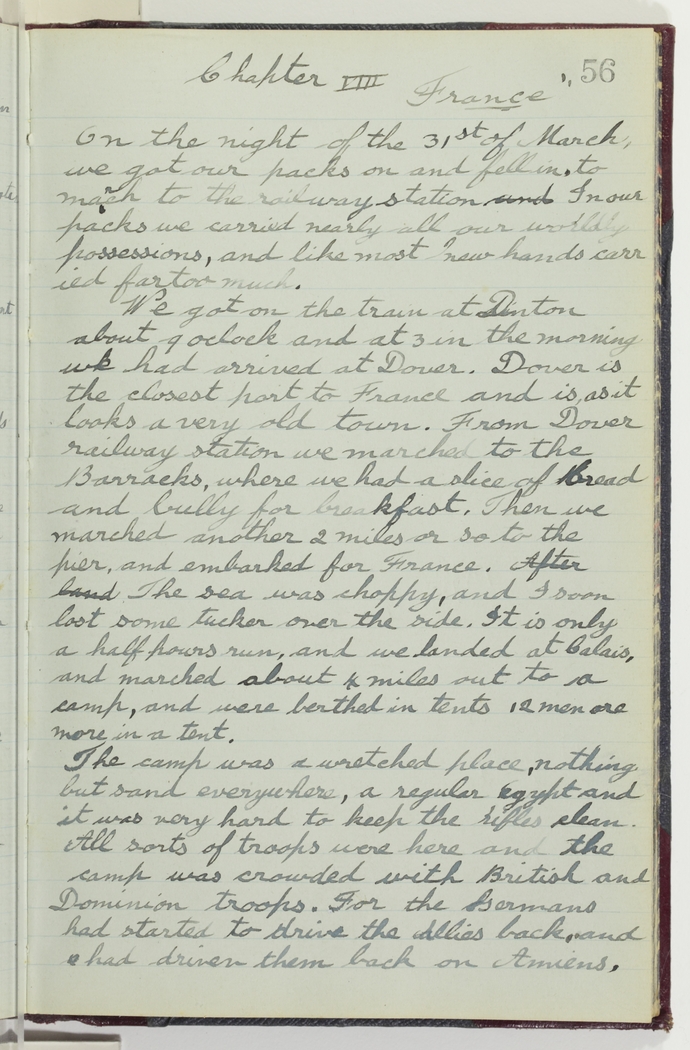 Chapter VIIII
56
France
On the night of the 31st of March,
we got our packs on and fell in, to
march to the railway station and In our
packs we carried nearly all our worldly
possessions, and like most new hands carr
ied far too much.
We got on the train at Dinton
about 9 oclock and at 3 in the morning
we had arrived at Dover. Dover is
the closest port to France and is, as it
looks a very old town. From Dover
railway station we marched to the
Barracks, where we had a slice of Bread
and bully for breakfast. Then we
marched another 2 miles or so to the
pier, and embarked for France. After
land The sea was choppy, and I soon
lost some tucker over the side. It is only
a half hours run, and we landed at Calais,
and marched about 4 miles out to a
camp, and were berthed in tents 12 men ore
more in a tent.
The camp was a wretched place, nothing
but sand everywhere, a regular egypt and
it was very hard to keep the rifles clean.
All sorts of troops were here and the
camp was crowded with British and
Dominion troops. For the Germans
had started to drive the Allies back, and
had driven them back on Amiens.